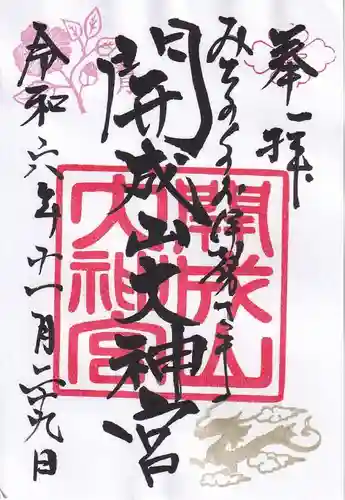 奉拝
みちのくのお伊勢さま
開成山大神宮
開成山大神宮
令和六年十一月二十九日